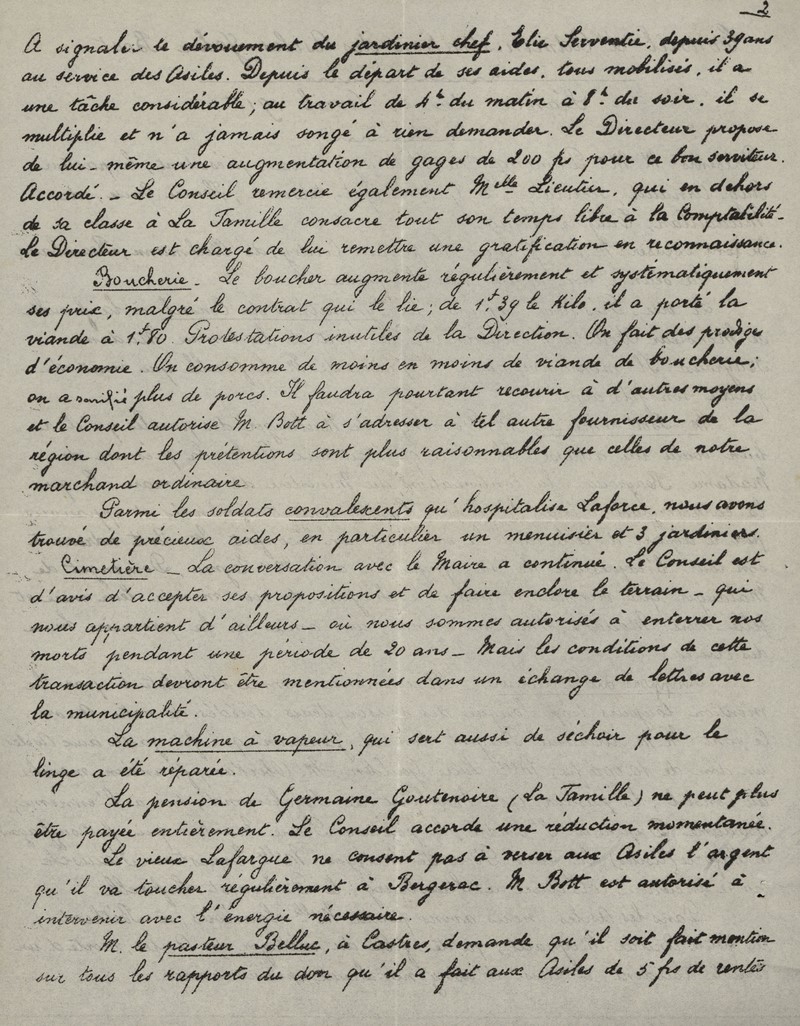 2
A signaler le dévouement du jardinier chef, Elie Serventie, depuis 39 ans
au service des Asiles. Depuis le départ de ses aides, tous mobilisés, il a
une tâche considérable ; au travail de 4h. du matin à 8h. du soir, il se
multiplie et n'a jamais songé à rien demander. Le Directeur propose
de lui-même une augmentation de gages de 200 frs pour ce bon serviteur.
Accordé. - Le Conseil remercie également Melle Lieutier, qui en dehors
de sa classe à La Famille consacre tout son temps libre à la Comptabilité -
Le Directeur est chargé de lui remettre une gratification en reconnaissance.
Boucherie - Le boucher augmente régulièrement et systématiquement
ses prix, malgré le contrat qui le lie ; de 1f.39 le Kilo, il a porté la
viande à 1f.80. Protestations inutiles de la Direction. On fait des prodiges
d'économie. On consomme de moins en moins de viande de boucherie ;
on a plus de porcs. Il faudra pourtant recourir à d'autres moyens
et le Conseil autorise M. Bott à s'adresser à tel autre fournisseur de la
région dont les prétentions sont plus raisonnables que celles de notre
marchand ordinaire.
Parmi les soldats convalescents qu'hospitalise Laforce, nous avons
trouvé de précieux aides, en particulier un menuisier et 3 jardiniers.
Cimetière - La conversation avec le Maire a continué. Le Conseil est
d'avis d'accepter ses propositions et de faire enclore le terrain - qui
nous appartient d'ailleurs - où nous sommes autorisés à enterrer nos
morts pendant une période de 20 ans - Mais les conditions de cette
transaction devront être mentionnées dans un échange de lettres avec
la municipalité.
La machine à vapeur, qui sert aussi de séchoir pour le
linge a été réparée.
La pension de Germaine Goutenoire (La Famille) ne peut plus
être payée entièrement. Le Conseil accorde une réduction momentanée.
Le vieux Lafargue ne consent pas à verser aux Asiles l'argent
qu'il va toucher régulièrement à Bergerac. M. Bott est autorisé à
intervenir avec l'énergie nécessaire.
M. le pasteur Belluc, à Castres, demande qu'il soit fait mention
sur tous les rapports du don qu'il a fait aux Asiles de 5 frs de rentes